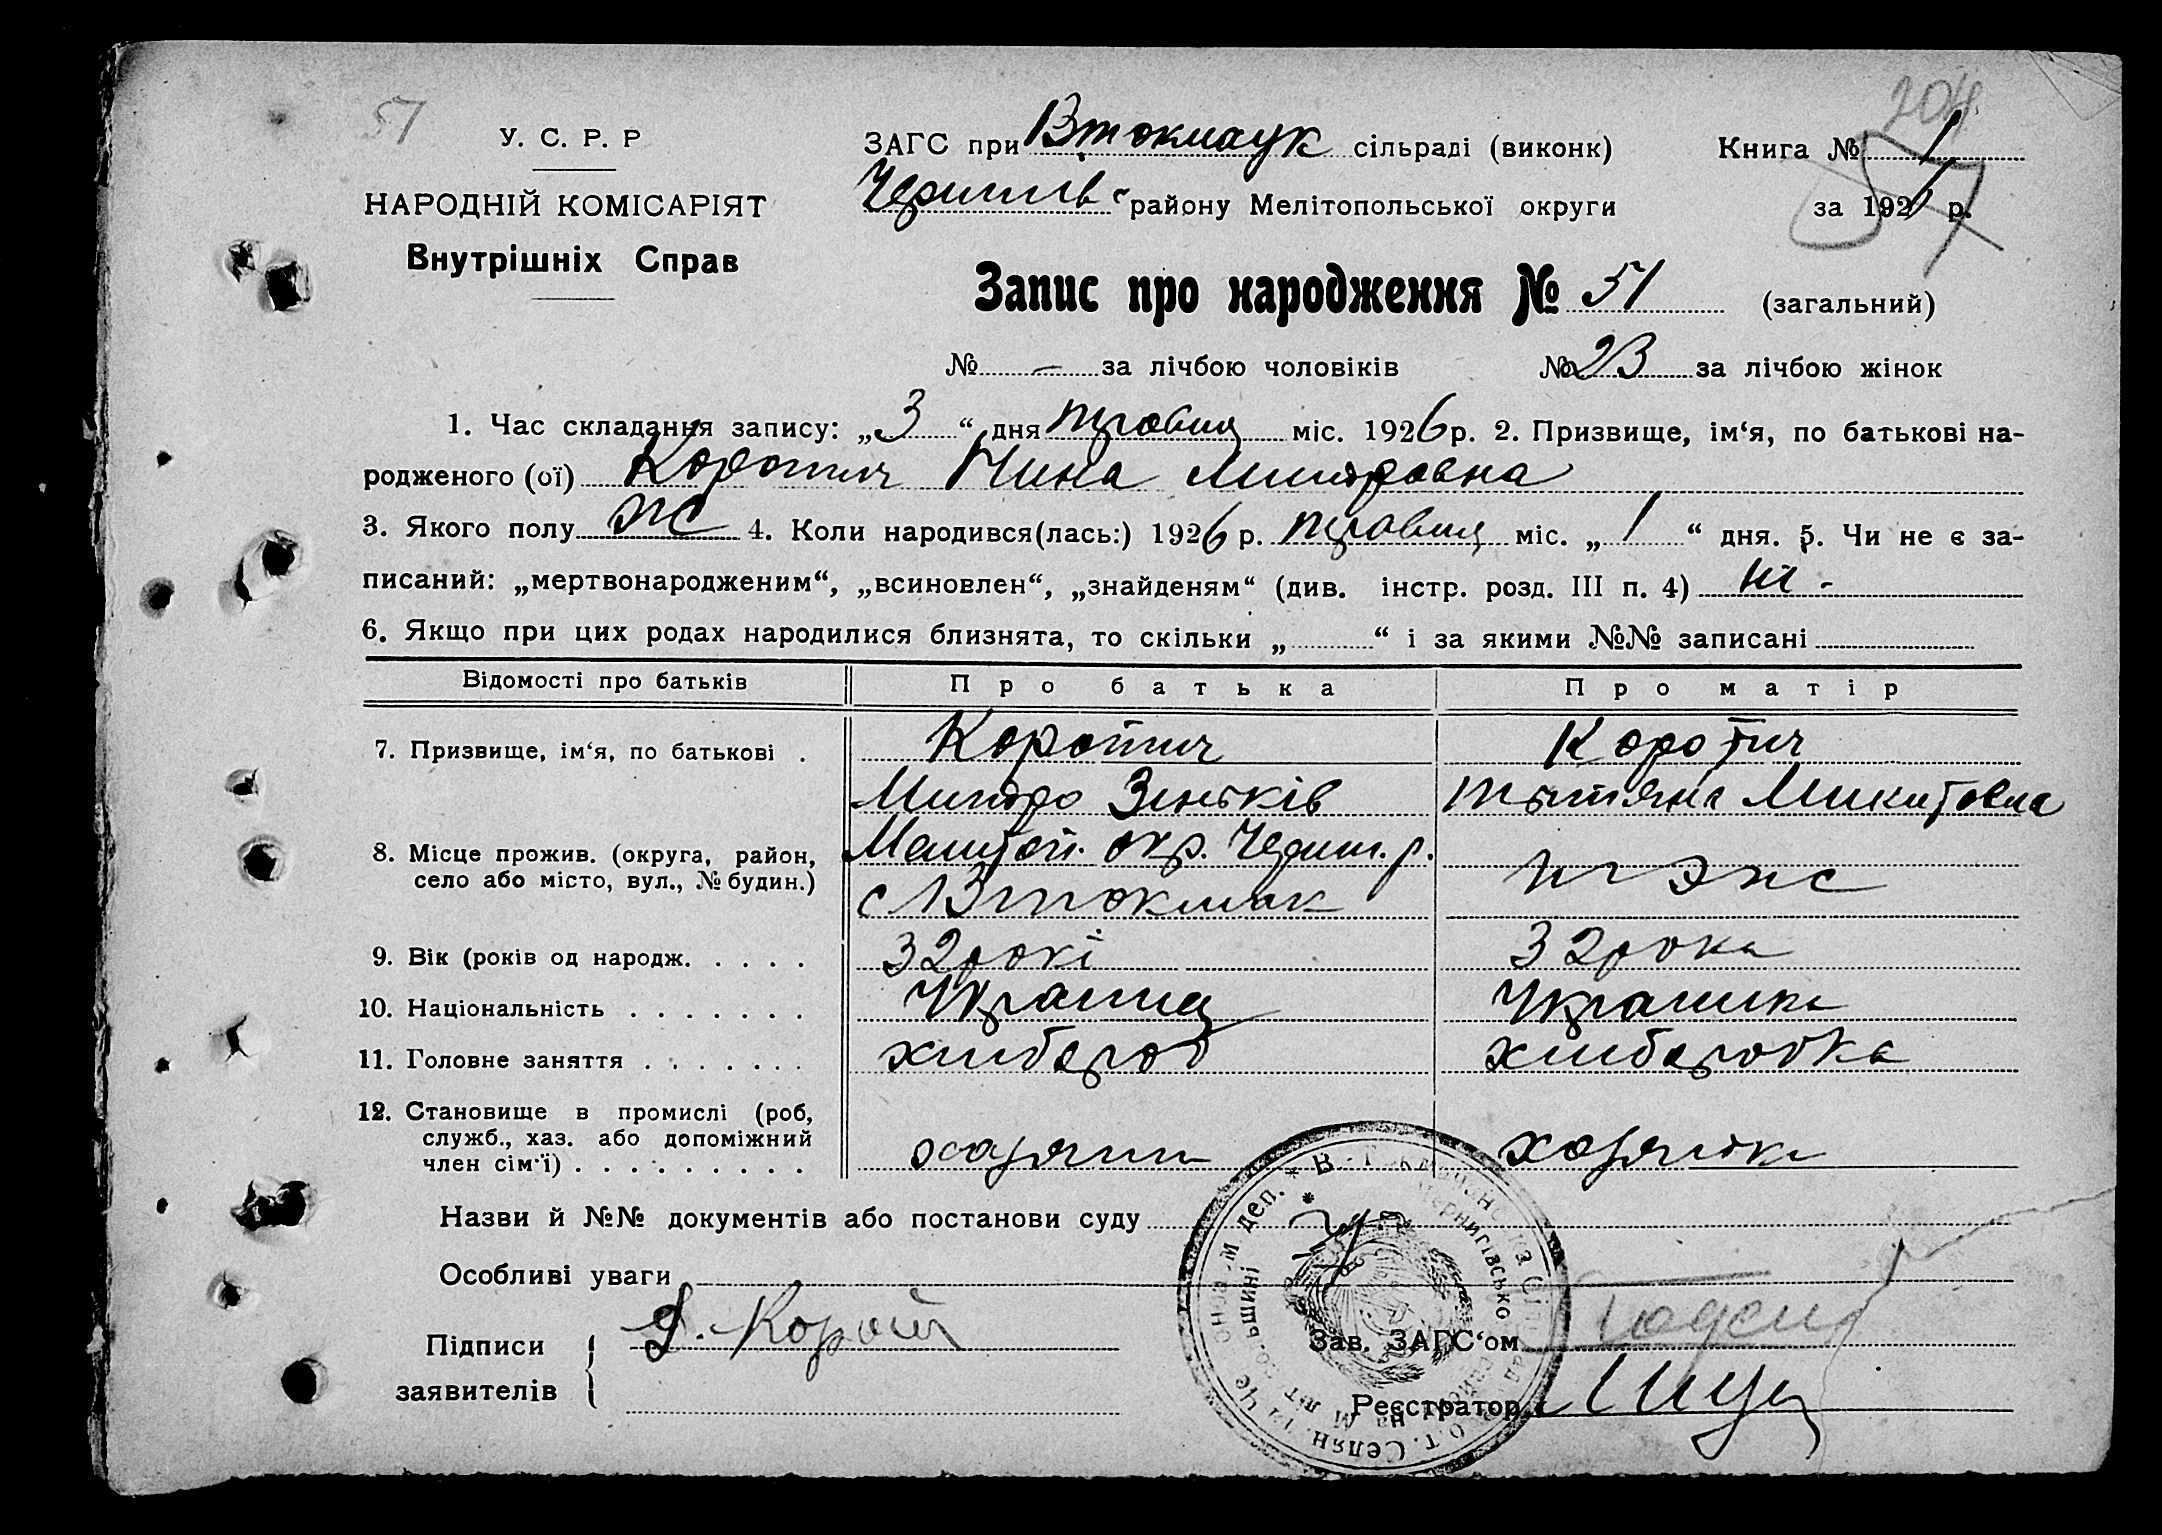 51
204
57
У. С. Р. Р
НАРОДНІЙ КОМІСАРІЯТ
Внутрішніх Справ
ЗАГС при Втокмаук сільраді (виконк) Книга № 1
Черниів району Мелітопольської округи за 1926 р.
Запис про народження № 51 (загальний)
№ - за лічбою чоловіків № 23 за лічбою жінок
1. Час складання запису: „3“ дня травня міс. 1926 р. 2. Призвище, ім‘я, по батькові на-
родженого (ої) Коротич Нина Митровна
3. Якого полу ж 4. Коли народився(лась:) 1926 р. травня міс. „1“ дня. 5. Чи не є за-
писаний: „мертвонародженим“, „всиновлен“, „знайденям“ (див. інстр. розд. III п. 4) ні -
6. Якщо при цих родах народилися близнята, то скільки „ “ і за якими №№ записані
Відомості про батьків Про батька Про матір
7. Призвище, ім‘я, по батькові . Коротич Коротич
Митро Зіньків Тытяна Микитовна
8. Місце прожив. (округа, район, село або місто, вул., № будин.) Меліт. окр. Черниг. р.
с Втокмак
9. Вік (років од народж. . . . . . 32 рокі 32 рока
10. Національність . . . . . . . Украинец Украинка
11. Головне заняття . . . . . . . хлибароб хлибаробка
12. Становище в промислі (роб, служб., хаз. або допоміжний член сім‘ї) . . . . . . . . . хазяин хазяйка
Назви й №№ документів або постанови суду
Особливі уваги
Підписи заявителів { Д. Корот
Зав. ЗАГС‘ом
Реєстратор